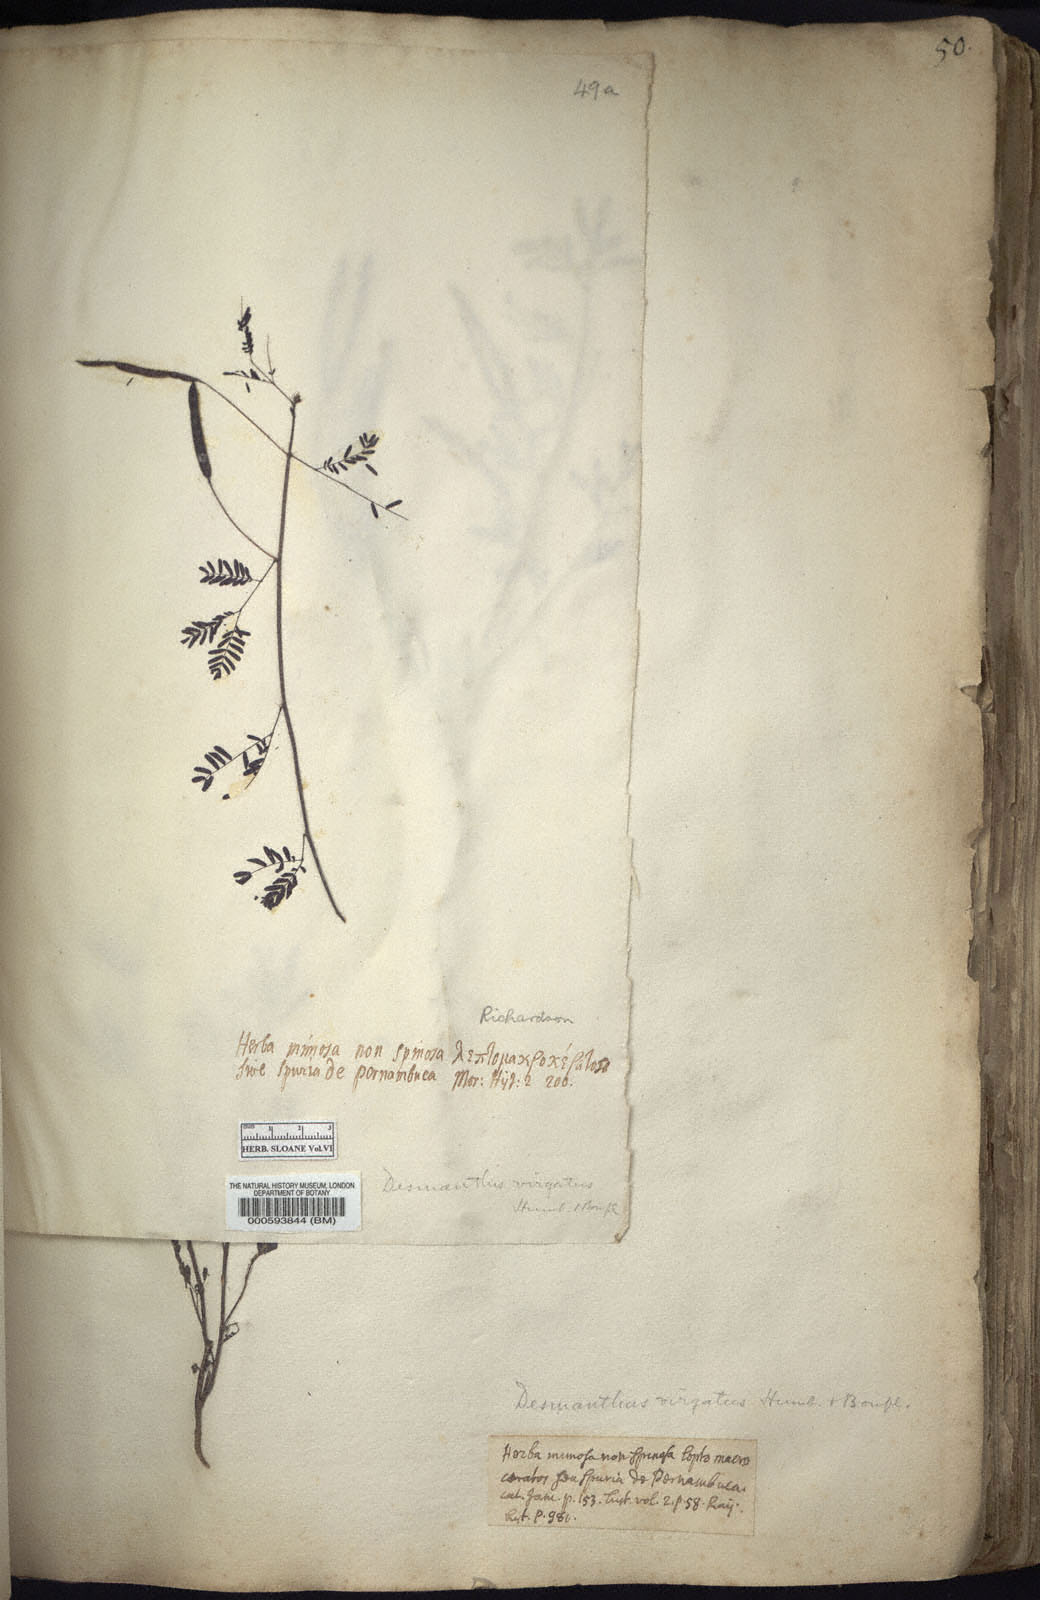 50.
49a
Richardson
Herba mimosa non spinosa λεπτομακροκέρατος
sive spuria de pernambuca Mor: Hist: 2 200.
1 2 3
HERB. SLOANE Vol.VI
THE NATURAL HISTORY MUSEUM, LONDON
DEPARTMENT OF BOTANY
000593844 (BM)
Desmanthus virgatus
Humb. & Bonpl.
Desmanthus virgatus Humb. & Bonpl.
Herba mimosa non spinosa lepto macro
ceratos seu spuria de Pernambuca.
cat. Jam. p. 153. hist. vol. 2. p 58. Raij.
hist. p. 981.